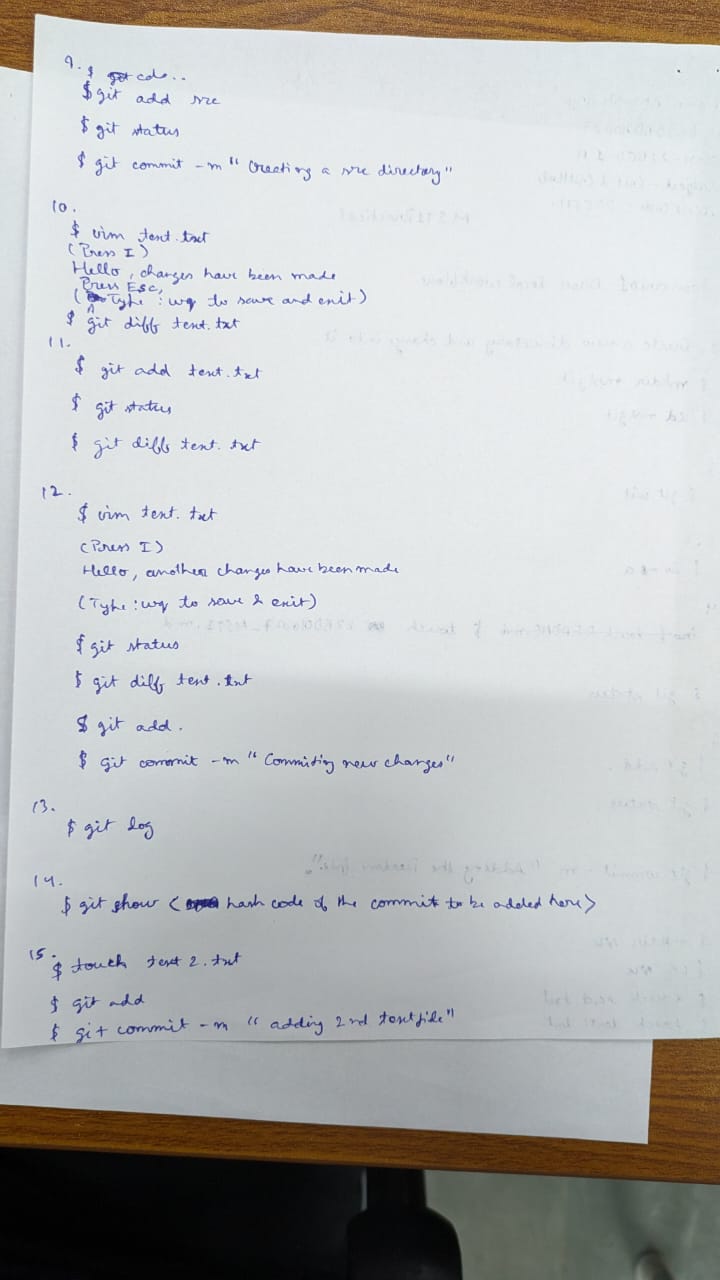 9.
$ cd ..
$ git add src
$ git status
$ git commit -m "Creating a src directory"
10.
$ vim text.txt
(Press I)
Hello, changes have been made
Press Esc,
(Type :wq to save and exit)
$ git diff text.txt
11.
$ git add text.txt
$ git status
$ git diff text.txt
12.
$ vim text.txt
(Press I)
Hello, another changes have been made
(Type :wq to save & exit)
$ git status
$ git diff text.txt
$ git add .
$ git commit -m "Commiting new changes"
13.
$ git log
14.
$ git show < hash code of the commit to be added here>
15.
$ touch text 2.txt
$ git add
$ git commit -m "adding 2nd textfile"